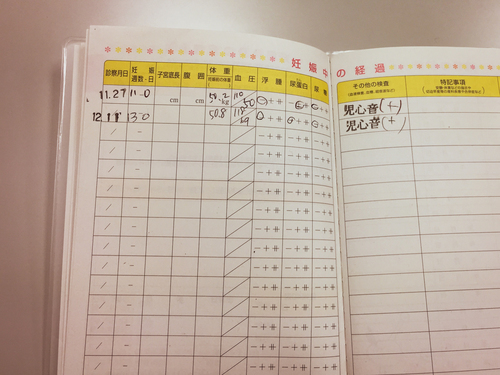 妊娠中の経過
診察月日 妊娠週数・日 子宮底長 腹囲 体重 血圧 浮腫 尿蛋白 尿糖 その他の検査 特記事項
11.27 11-0 cm cm kg 110/50 - + ⧺ - + ⧺ - + ⧺ 児心音(+)
12.11 13-0 50.8 118/ - + ⧺ - + ⧺ - + ⧺ 児心音(+)
/ / - + ⧺ - + ⧺ - + ⧺
/ / - + ⧺ - + ⧺ - + ⧺
/ / - + ⧺ - + ⧺ - + ⧺
/ / - + ⧺ - + ⧺ - + ⧺
/ / - + ⧺ - + ⧺ - + ⧺
/ / - + ⧺ - + ⧺ - + ⧺
/ / - + ⧺ - + ⧺ - + ⧺
/ / - + ⧺ - + ⧺ - + ⧺
/ / - + ⧺ - + ⧺ - + ⧺
/ / - + ⧺ - + ⧺ - + ⧺
/ / - + ⧺ - + ⧺ - + ⧺
/ / - + ⧺ - + ⧺ - + ⧺